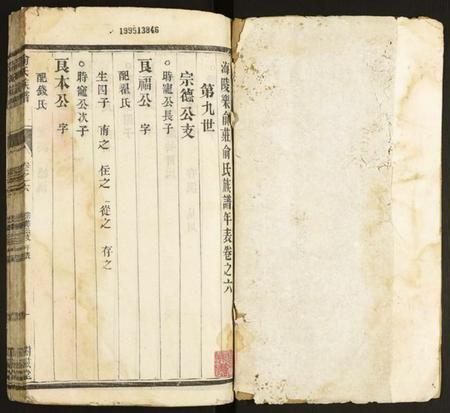 199513846
海陵樂俞莊俞氏族譜年表卷之六
第九世
宗德公支
○時寵公長子
良福公 字
配翟氏
生四子 南之 任之 從之 存之
○時寵公次子
良本公 字
配錢氏